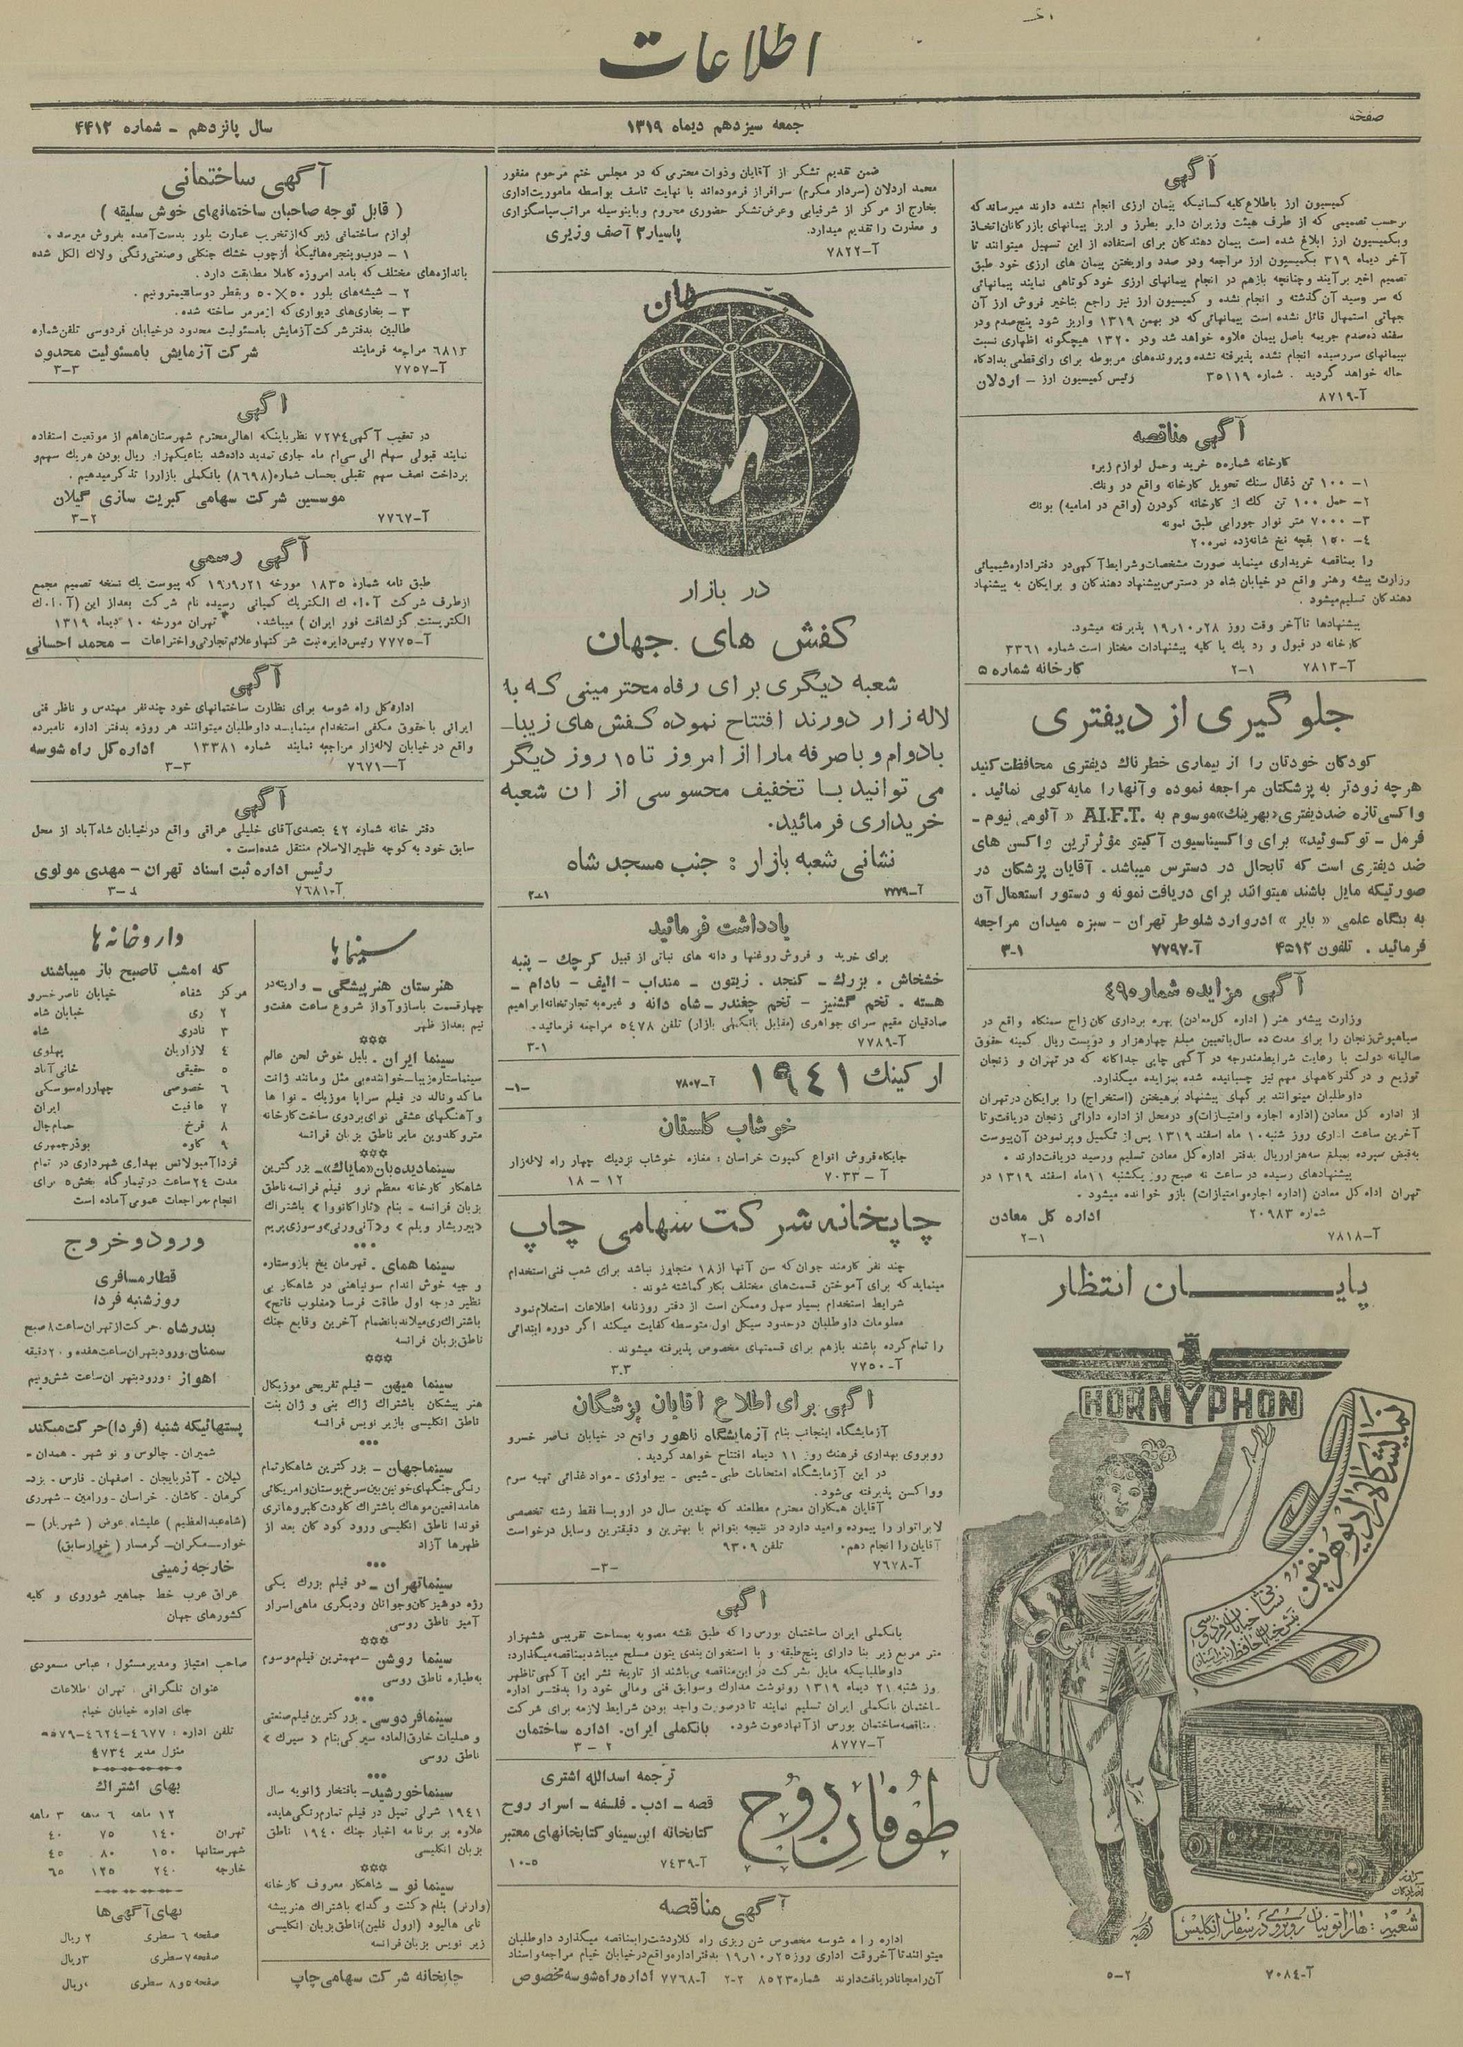 اطلاعات
صفحه
جمعه سیزدهم دیماه ۱۳۱۹
سال پانزدهم – شماره ۴۴۱۲
آگهی
کمیسیون ارز باطلاع کلیه کسانیکه پیمان ارزی انجام نشده دارند میرساند که
برحسب تصمیمی که از طرف هیئت وزیران دایر بطرز و اریز پیمانهای بازرگانان اتخاذ
وبکمیسیون ارز ابلاغ شده است پیمان دهندکان برای استفاده از این تسهیل میتوانند تا
آخر دیماه ۳۱۹ بکمیسیون ارز مراجعه ودر صدد واریختن پیمان های ارزی خود طبق
تصمیم اخیر برآیند وچنانچه بازهم در انجام پیمانهای ارزی خود کوتاهی نمایند پیمانهائی
که سر وسید آن گذشته و انجام نشده و کمیسیون ارز نیز راجع بتاخیر فروش ارز آن
جهاتی استمهال قائل نشده است پیمانهائی که در بهمن ۱۳۱۹ واریز شود پنج‌صدم ودر
سفند ده‌صدم جریمه باصل پیمان علاوه خواهد شد ودر ۱۳۲۰ هیچگونه اظهاری نسبت
بیمانهای سررسیده انجام نشده پذیرفته نشده وپرونده‌های مربوطه برای رای‌قطعی بدادکاه
حاله خواهد گردید . شماره ۳۵۱۱۹ رئیس کمیسیون ارز – اردلان
آ–۸۷۱۹
آگهی مناقصه
کارخانه شماره۵ خرید وحمل لوازم زیره
۱– ۱۰۰ تن ذغال سنك تحویل کارخانه واقع در ونك.
۲– حمل ۱۰۰ تن کك از کارخانه کودرن (واقع در امامیه) بونك
۳– ۷۰۰۰ متر نوار جورابی طبق نمونه
۴– ۱۵۰ بقچه نخ شانه‌زده نمره۲۰
را بمناقصه خریداری مینماید صورت مشخصات وشرایط آکهی در دفتر اداره شیمیائی
وزارت پیشه وهنر واقع در خیابان شاه در دسترس پیشنهاد دهندکان و برایکان به پیشنهاد
دهندکان تسلیم‌میشود .
پیشنهادها تاآخر وقت روز ۲۸ر۱۰ر۱۹ پذیرفته میشود.
کارخانه در قبول و رد یك یا کلیه پیشنهادات مختار است شماره ۳۳۶۱
آ–۷۸۱۳ ۱–۲ کارخانه شماره ۵
جلوگیری از دیفتری
کودکان خودتان را از بیماری خطرناك دیفتری محافظت کنید
هرچه زودتر به پزشکتان مراجعه نموده وآنها را مایه‌کوبی نمائید .
واکسی‌تازه ضددیفتری«بهرینك»موسوم به A.I.F.T. « آلومی نیوم –
فرمل – توکسوئید» برای واکسیناسیون آکتیو مؤثرترین واکسن های
ضد دیفتری است که تابحال در دسترس میباشد. آقایان پزشکان در
صورتیکه مایل باشند میتوانند برای دریافت نمونه و دستور استعمال آن
به بنگاه علمی « بایر » ادروارد شلوطر تهران – سبزه میدان مراجعه
فرمائید. تلفون ۴۵۱۲ آ–۷۷۹۷ ۱–۳
آگهی مزایده شماره ۴۹۰
وزارت پیشه‌و هنر ( اداره کل‌معادن) بهره برداری کان‌زاج سمنکاه واقع در
سیاهپوش‌زنجان را برای مدت ده سال‌باتعیین مبلغ چهارهزار و دویست ریال کمینه حقوق
سالیانه دولت با رعایت شرایط‌مندرجه در آکهی چاپی جداکانه که در تهران و زنجان
توزیع و در گذرکاههای مهم نیز چسبانیده شده بمزایده میگذارد.
داوطلبان میتوانند برگهای پیشنهاد برهیختن (استخراج) را برایکان درتهران
از اداره کل معادن (اداره اجاره وامتیازات)و درمحل از اداره دارائی زنجان دریافت‌وتا
آخرین ساعت اداری روز شنبه۱۰ ماه اسفند ۱۳۱۹ پس از تکمیل وپر نمودن آن‌پیوست
به‌قبض سپرده بمبلغ سه‌هزارریال بدفتر اداره کل معادن تسلیم ورسید دریافت‌دارند .
پیشنهادهای رسیده در ساعت نه صبح روز یکشنبه ۱۱ماه اسفند ۱۳۱۹ در
تهران اداه کل معادن (اداره اجاره‌وامتیازات) بازو خوانده میشود .
شماره ۲۰۹۸۳ اداره کل معادن
آ–۷۸۱۸ ۱–۲
پایان انتظار
HORNYPHON
آ–۷۰۸۴ ۲–۵
ضمن تقدیم تشکر از آقایان وذوات محترمی که در مجلس ختم مرحوم مغفور
محمد اردلان (سردار مکرم) سرافراز فرموده‌اند با نهایت تاسف بواسطه ماموریت‌اداری
بخارج از مرکز از شرفیابی وعرض‌تشکر حضوری محروم وباینوسیله مراتب‌سپاسگزاری
و معذرت را تقدیم میدارد. پاسیار۲ آصف وزیری
آ–۷۸۲۲
جهان
در بازار
کفش های جهان
شعبه دیگری برای رفاه محترمینی که به
لاله‌زار دورند افتتاح نموده کفش‌های زیبا–
بادوام و باصرفه مارا از امروز تا ۱۵ روز دیگر
می توانید با تخفیف محسوسی از ان شعبه
خریداری فرمائید.
نشانی شعبه بازار : جنب مسجد شاه
آ–۷۷۷۹ ۱–۲
یادداشت فرمائید
برای خرید و فروش روغنها و دانه های نباتی از قبیل کرچك – پنبه
خشخاش . بزرك – کنجد . زیتون – منداب – الیف – بادام –
هسته . تخم گشنیز – تخم چغندر – شاه دانه و غیره به تجارتخانه ابراهیم
صادقیان مقیم سرای جواهری (مقابل بانکملی بازار) تلفن ۵۴۷۸ مراجعه فرمائید.
آ–۷۷۸۹ ۱–۳
ار کینك ۱۹۴۱ آ–۷۸۰۷ –۱–
خوشاب گلستان
جایکاه فروش انواع کمپوت خراسان: مغازه خوشاب نزدیك چهار راه لاله‌زار
آ – ۷۰۳۳ ۱۲ – ۱۸
چاپخانه شرکت سهامی چاپ
چند نفر کارمند جوان که سن آنها از۱۸ متجاوز نباشد برای شعب فنی استخدام
مینماید که برای آموختن قسمت‌های مختلف بکار گماشته شوند .
شرایط استخدام بسیار سهل وممکن است از دفتر روزنامه اطلاعات استعلام‌نمود
معلومات داوطلبان درحدود سیکل اول‌متوسطه کفایت میکند اگر دوره ابتدائی
را تمام کرده باشند بازهم برای قسمتهای مخصوص پذیرفته میشوند .
آ–۷۷۵۰ ۳ـ۳
آگهی برای اطلاع آقایان پزشگان
آزمایشگاه اینجانب بنام آزمایشگاه ناهور واقع در خیابان ناصر خسرو
روبروی بهداری فرهنك روز ۱۱ دیماه افتتاح خواهد گردید .
در این آزمایشگاه امتحانات طبی–شیمی – بیولوژی – مواد غذائی تهیه سرم
وواکسن پذیرفته می‌شود.
آقایان همکاران محترم مطلعند که چندین سال در اروپا فقط رشته تخصصی
لابراتوار را پیموده وامید دارد در نتیجه بتوانم با بهترین و دقیقترین وسایل درخواست
آقایان را انجام دهم. تلفن ۹۳۰۹
آ–۷۶۷۸ –۳–
آگهی
بانکملی ایران ساختمان بورس را که طبق نقشه مصوبه بمساحت تقریبی ششهزار
متر مربع زیر بنا دارای پنج‌طبقه و با استخوان بندی بتون مسلح میباشد بمناقصه میگذارد:
داوطلبانیکه مایل بشرکت در این‌مناقصه می‌باشند از تاریخ نشر این آکهی تاظهر
روز شنبه ۲۱ دیماه ۱۳۱۹ رونوشت مدارك وسوابق فنی ومالی خود را بدفتر اداره
ساختمان بانکملی ایران تسلیم نمایند تا درصورت واجد بودن شرایط لازمه برای شرکت
مناقصه ساختمان بورس ازآنها دعوت شود. بانکملی ایران. اداره ساختمان
آ–۸۷۷۷ ۲ – ۳
طوفان روح
ترجمه اسدالله اشتری
قصه – ادب . فلسفه – اسرار روح
کتابخانه ابن‌سینا و کتابخانهای معتبر
آ–۷۴۳۹ ۵–۱۰
آگهی مناقصه
اداره راه شوسه مخصوص شن ریزی راه کلاردشت را بمناقصه میگذارد داوطلبان
میتوانند تا آخروقت اداری روز۲۵ر۱۰ر۱۹ بدفتر اداره واقع در خیابان خیام مراجعه واسناد
آن‌را مجانا دریافت دارند شماره ۸۵۲۳ ۲–۲ آ–۷۷۶۸ اداره راه شوسه مخصوص
آگهی ساختمانی
( قابل توجه صاحبان ساختمانهای خوش سلیقه )
لوازم ساختمانی زیر که از تخریب عمارت بلور بدست آمده بفروش میرسد .
۱ – درب‌وپنجره‌هائیکه از چوب خشك جنکلی وصنعتی‌رنگی ولاك الکل شده
باندازه‌های مختلف که بامد امروزه کاملا مطابقت دارد .
۲ – شیشه‌های بلور ۵۰×۵۰ وبقطر دوسانتیمترونیم .
۳ – بخاری‌های دیواری که از مرمر ساخته شده .
طالبین بدفتر شرکت آزمایش بامسئولیت محدود در خیابان فردوسی تلفن شماره
۶۸۱۳ مراجعه فرمایند شرکت آزمایش بامسئولیت محدود
آ–۷۷۵۷ ۳–۳
آگهی
در تعقیب آکهی۷۲۷۴ نظر باینکه اهالی‌محترم شهرستان‌هاهم از موقعیت استفاده
نمایند قبولی سهام الی سی‌ام ماه جاری تمدید داده شد بناعیکهزار ریال بودن هر یك سهم‌و
پرداخت نصف سهم نقبلی بحساب شماره(۸۶۹۸) بانکملی بازاررا تذکر میدهیم .
موسسین شرکت سهامی کبریت سازی گیلان
آ–۷۷۶۷ ۲–۳
آگهی رسمی
طبق نامه شماره ۱۸۳۵ مورخه ۲۱ر۹ر۱۹ که پیوست یك نسخه تصمیم مجمع
ازطرف شرکت آ.ا.ك الکتریك کمپانی رسیده نام شرکت بعداز این (آ.ا.ك
الکتریسیتت گزلشافت فور ایران) میباشد. تهران مورخه ۱۰ دیماه ۱۳۱۹
آ–۷۷۷۵ رئیس‌دایره ثبت شرکتها وعلائم تجارتی واختراعات – محمد احسانی
آگهی
اداره کل راه شوسه برای نظارت ساختمانهای خود چند نفر مهندس و ناظر فنی
ایرانی باحقوق مکفی استخدام مینمایــد داوطلبان میتوانند هر روزه بدفتر اداره نامبرده
واقع در خیابان لاله‌زار مراجعه نمایند شماره ۱۳۳۸۱ اداره کل راه شوسه
آ–۷۶۷۱ ۳–۳
آگهی
دفتر خانه شماره ۴۲ بتصدی آقای خلیلی عراقی واقع درخیابان شاه‌آباد از محل
سابق خود به‌کوچه ظهیرالاسلام منتقل شده‌است .
رئیس اداره ثبت اسناد تهران – مهدی مولوی
آ–۷۶۸۱
سینماها
هنرستان هنر پیشگی – واریته‌در
چهارقسمت باسازوآواز شروع ساعت هفت‌و
نیم بعداز ظهر
سینما ایران . بابل خوش لحن عالم
سینماستاره‌زیبا–خواننده‌بی مثل ومانند ژانت
ماکدونالد در فیلم سراپا موزیك – نوا ها
وآهنگهای عشقی نوای‌بردوی ساخت‌کارخانه
متروکلدوین مایر ناطق بزبان فرانسه
سینمادیده‌بان«مایاك»– بزرگترین
شاهکار کارخانه معظم نرو فیلم فرانسه ناطق
بزبان فرانسه – بنام «تاراکانووا» باشتراك
«پیرریشار ویلم» و«آنی‌ورنی»وسوزی‌پریم
سینما همای . قهرمان یخ بازوستاره
وجیه خوش اندام سونیاهنی در شاهکار بی
نظیر درجه اول طاقت فرسا «مغلوب فاتح»
باشتراك‌ری‌میلاندبانضمام آخرین وقایع جنك
ناطق‌بزبان فرانسه
سینما میهن – فیلم تفریحی موزیکال
هنر پیشکان باشتراك ژاك بنی و ژان بنت
ناطق انکلیسی بازیر نویس فرانسه
سینماجهان – بزرکترین شاهکارتمام
رنکی‌جنگهای خونین‌بین‌سرخ پوستان وامریکائی
هامدافعین‌موهاك باشتراك کلودت کلبروهانری
فوندا ناطق انکلیسی ورود کودکان بعد از
ظهرها آزاد
سینماتهران – دو فیلم بزرك یکی
رژه دوهیزکان‌وجوانان ودیگری ماهی‌اسرار
آمیز ناطق روسی
سینما روشن –مهمترین فیلم‌موسوم
به‌طیاره ناطق روسی
سینمافردوسی . بزرکترین فیلم‌صنعتی
وعملیات خارق‌العاده سیرکی‌بنام « سیرك »
ناطق روسی
سینماخورشید–بافتخار ژانویه سال
۱۹۴۱ شرلی تمپل در فیلم تمام‌رنکی‌هایده
علاوه بر برنامه اخبار جنك ۱۹۴۰ ناطق
بزبان انکلیسی
سینما نو – شاهکار معروف کارخانه
(وارنر) بنام «کنت و گدا» باشتراك هنرپیشه
نامی هالیود (ارول فلین)ناطق‌بزبان انکلیسی
زیر نویس بزبان‌فرانسه
چاپخانه شرکت سهامی چاپ
داروخانه‌ها
که امشب تاصبح باز میباشند
مرکز شفاء خیابان ناصرخسرو
۲ ری خیابان شاه
۳ نادری شاه
۴ لازاریان پهلوی
۵ حقیقی خانی‌آباد
۶ خصوصی چهارراه‌سوسکی
۷ عافیت ایران
۸ فرخ حمام‌چال
۹ کاوه بوذرجمهری
فردا آمبولانس بهداری شهرداری در تمام
مدت ۲۴ساعت درتیمارگاه بخش۵ برای
انجام مراجعات عمومی آماده است
ورود و خروج
قطار مسافری
روزشنبه فردا
بندرشاه .حرکت از تهران ساعت ۸صبح
سمنان.ورودبتهران‌ساعت‌هفده و۲۰دقیقه
اهواز : ورودبتهران‌ساعت شش‌ونیم
پستهائیکه شنبه (فردا)حرکت میکند
شمیران – چالوس و نو شهر – همدان –
گیلان – آذربایجان – اصفهان – فارس – یزد–
کرمان – کاشان. خراسان – ورامین – شهرری
(شاه عبدالعظیم) علیشاه عوض ( شهریار) –
خوار–مکران– گرمسار ( خوارسابق)
خارجه زمینی
عراق عرب خط جماهیر شوروی و کلیه
کشورهای جهان
صاحب امتیاز ومدیرمسئول: عباس مسعودی
عنوان تلگرافی . تهران اطلاعات
جای اداره خیابان خیام
منزل مدیر ۴۷۳۴
بهای اشتراك
۱۲ ماهه ۶ ماهه ۳ ماهه
تهران ۱۴۰ ۷۵ ۴۰
شهرستانها ۱۵۰ ۸۰ ۴۵
خارجه ۲۴۰ ۱۲۵ ۶۵
بهای آگهی‌ها
صفحه ۶ سطری ۲ ریال
صفحه ۷ سطری ۳ریال
صفحه ۵و۸ سطری